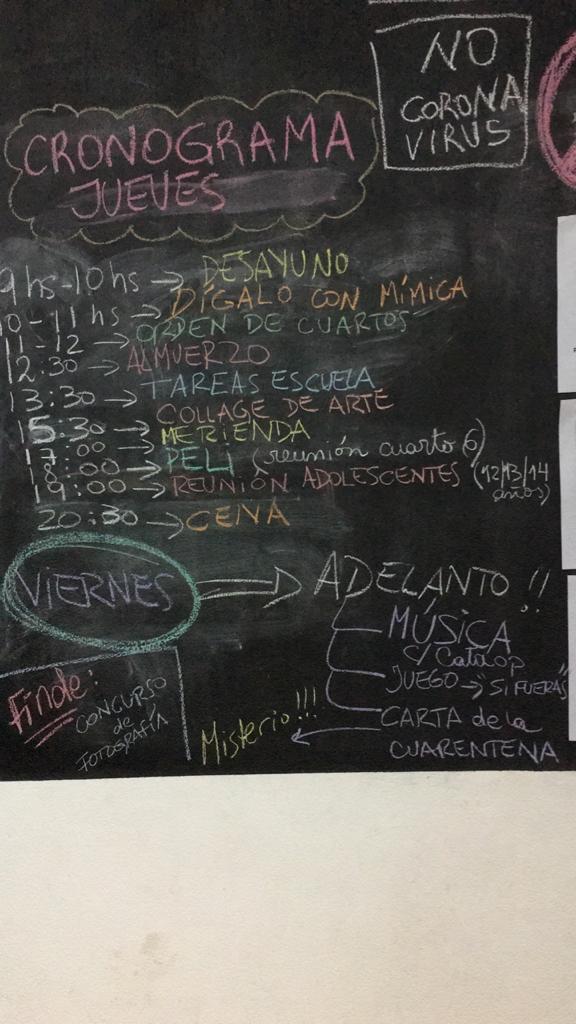 NO
CORONA
VIRUS
CRONOGRAMA
JUEVES
9hs-10hs → DESAYUNO
10-11 hs → DÍGALO CON MÍMICA
11-12 → ORDEN DE CUARTOS
12:30 → ALMUERZO
13:30 → TAREAS ESCUELA
15:30 → COLLAGE DE ARTE
17:00 → MERIENDA
18:00 → PELI (reunión cuarto 6)
19:00 → REUNIÓN ADOLESCENTES (12/13/14 años)
20:30 → CENA
VIERNES → ADELANTO!!
MÚSICA
c/ Catalop
JUEGO → "SI FUERAS"
CARTA de la
CUARENTENA
Misterio!!!
Finde:
CONCURSO
de
FOTOGRAFÍA